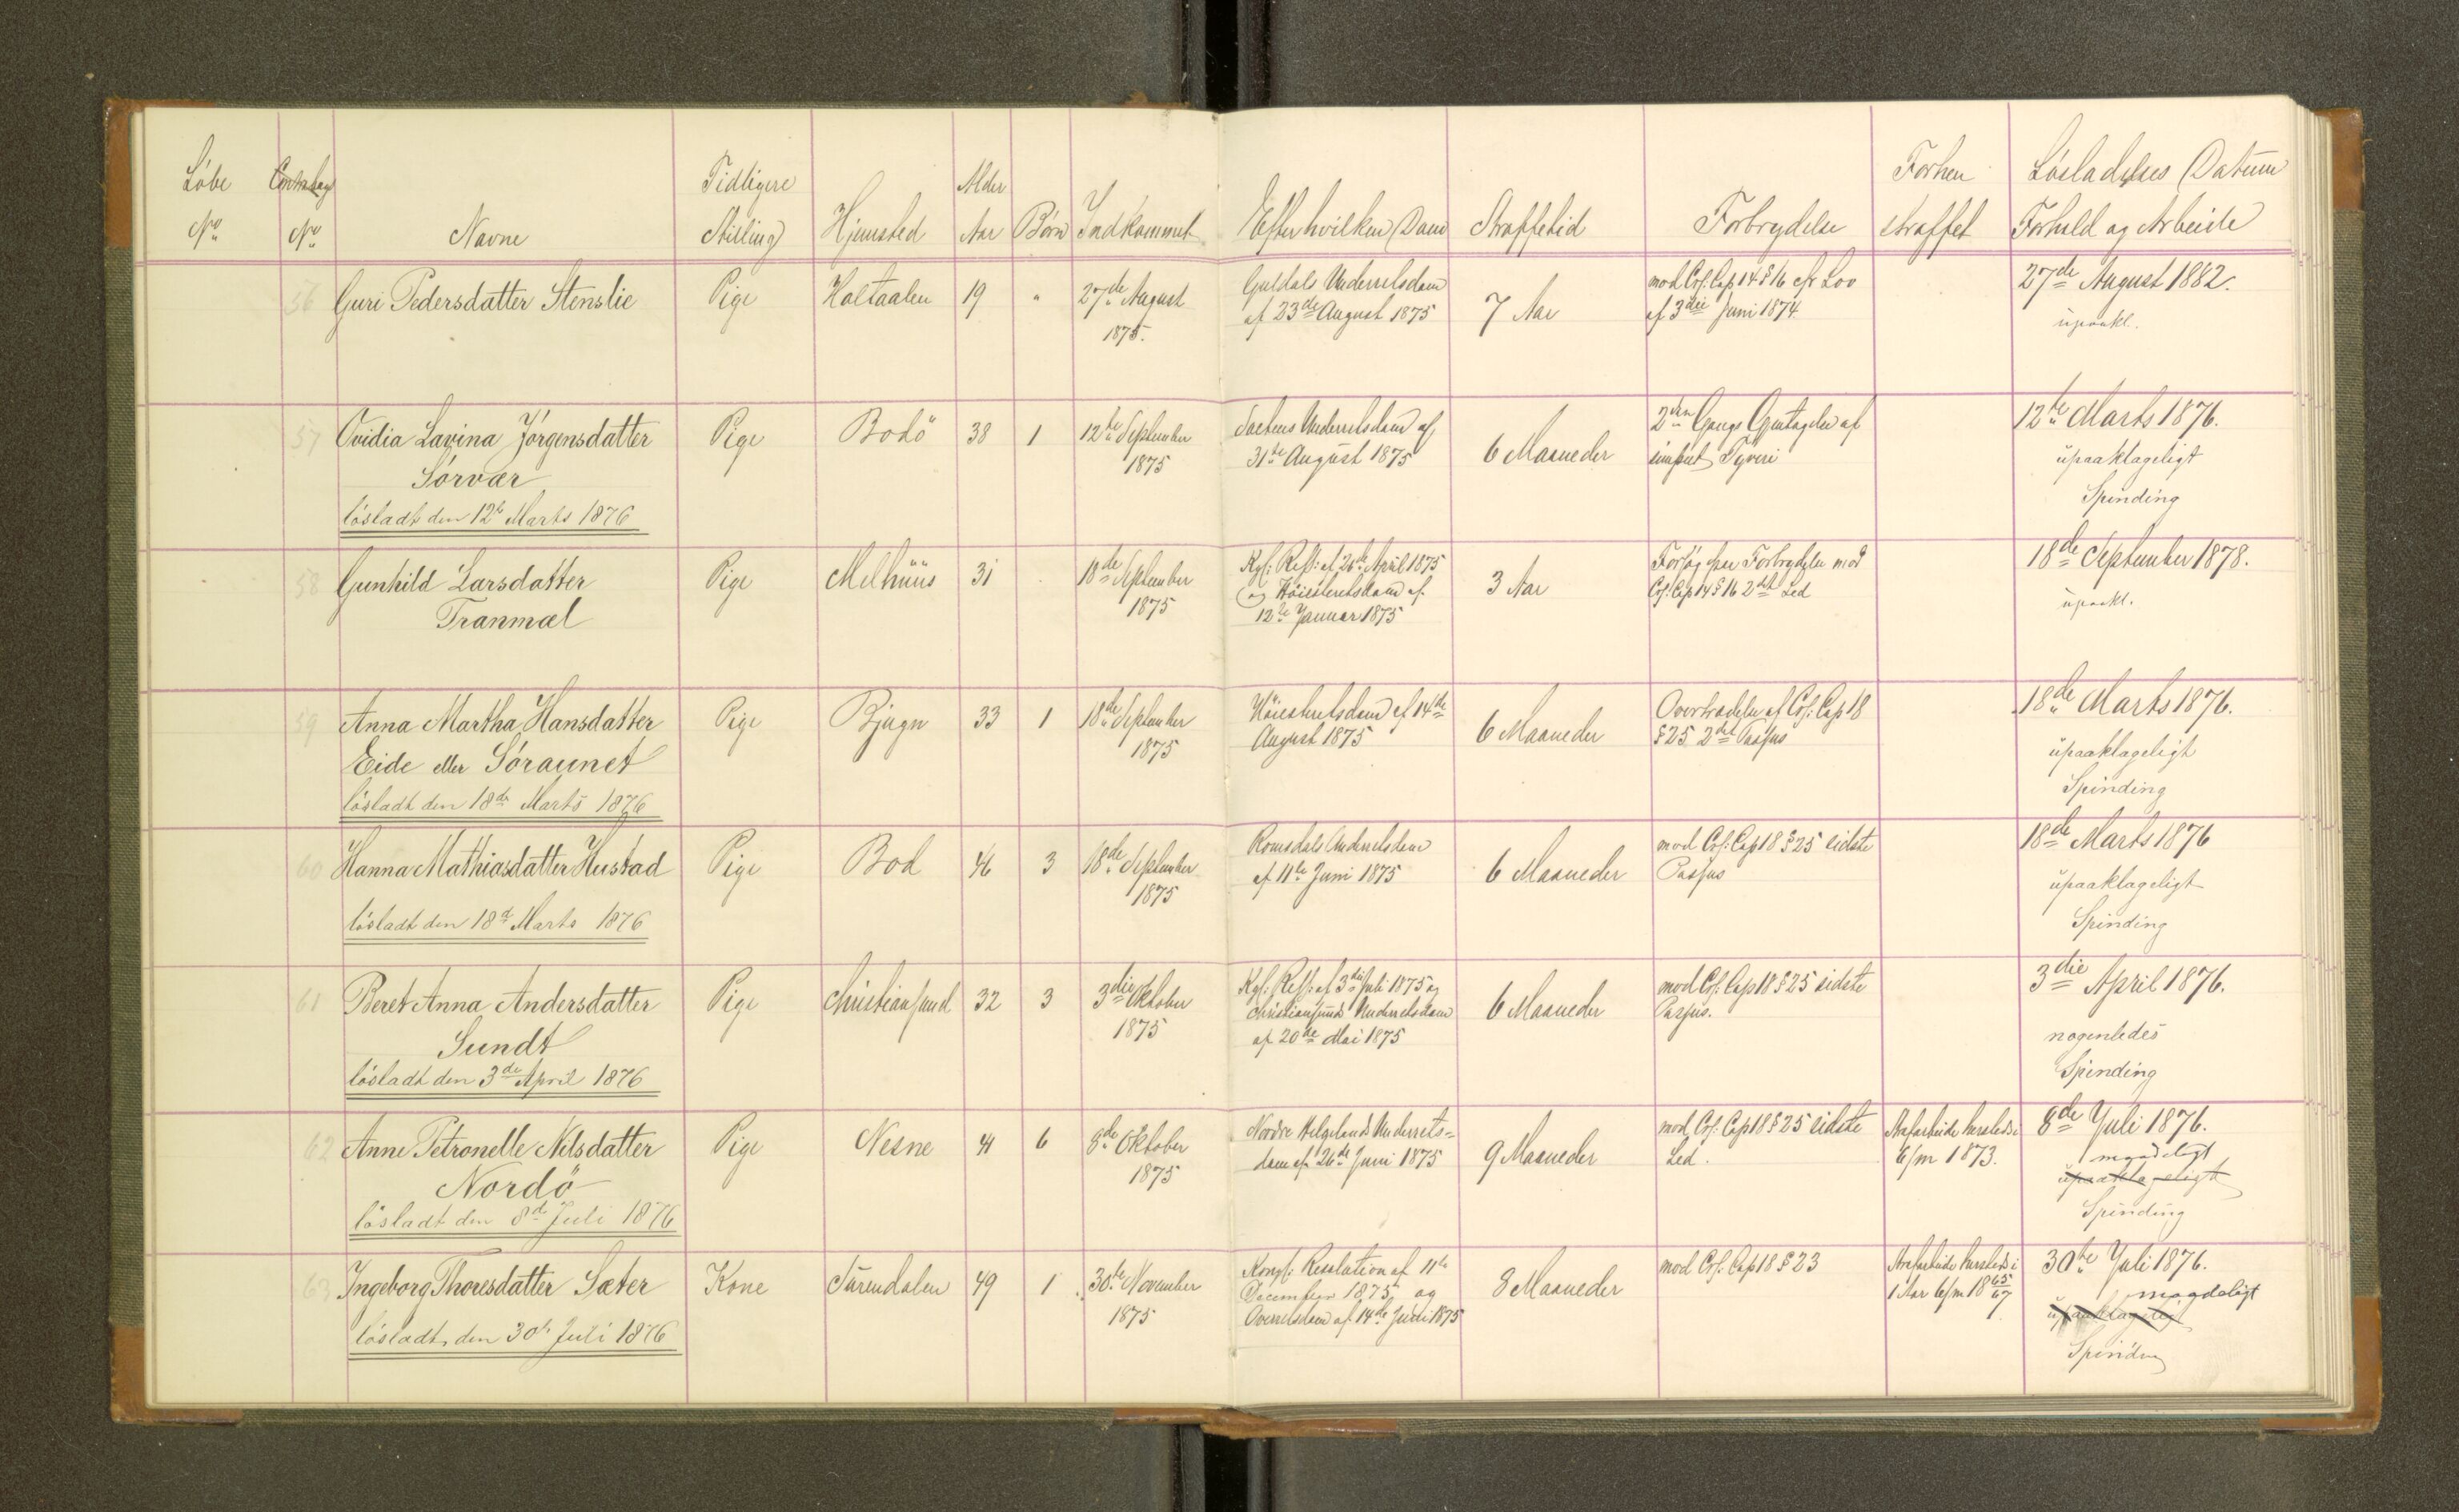 Löbe
No
No
Navne
Tidligere
Stilling
Hjemsted
Alder
Aar
Börn
Indkommet
Efter hvilken Dom
Straffetid
Forbrydelse
Forhen
straffet
Lösladelses Datum
Forhold og Arbeide
56
Guri Pedersdatter Stenslie
Pige
Holtaalen
19
"
27de August
1875.
Guldals Underretsdom
af 23de August 1875
7 Aar
mod Crl. Cap 14 § 16 cfr Lov
af 3die Juni 1874.
27de August 1882.
upaakl.
57
Ovidia Lavina Jörgensdatter
Sörvær
lösladt den 12te Marts 1876
Pige
Bodö
38
1
12te September
1875
Saltens Underretsdom af
31te August 1875
6 Maaneder
2den Gangs Gjentagelse af
simpelt Tyveri
12te Marts 1876.
upaaklageligt
Spinding
58
Gunhild Larsdatter
Tranmæl
Pige
Melhuus
31
18de September
1875
Kgl: Resl: af 26de April 1875
og Höiesteretsdom af
12te Januar 1875
3 Aar
Forsög paa Forbrydelse mod
Crl. Cap 14 § 16 2det Led
18de September 1878.
upaakl.
59
Anna Martha Hansdatter
Eide eller Söraunet
lösladt den 18de Marts 1876
Pige
Bjugn
33
1
18de September
1875
Höiesteretsdom af 14de
August 1875
6 Maaneder
Overtrædelse af Crl. Cap 18
§ 25 2det Passus
18de Marts 1876.
upaaklageligt
Spinding
60
Hanna Mathiasdatter Hustad
lösladt den 18de Marts 1876
Pige
Bod
46
3
18de September
1875
Romsdals Underretsdom
af 11te Juni 1875
6 Maaneder
mod Crl. Cap 18 § 25 sidste
Passus
18de Marts 1876
upaaklageligt
Spinding
61
Beret Anna Andersdatter
Sundt
lösladt den 3de April 1876
Pige
Christiansund
32
3
3die Oktober
1875
Kgl: Resl: af 3die Juli 1875 og
Christiansunds Underretsdom
af 20de Mai 1875
6 Maaneder
mod Crl. Cap 18 § 25 sidste
Passus.
3die April 1876.
nogenledes
Spinding
62
Anne Petronelle Nilsdatter
Nordö
lösladt den 8de Juli 1876
Pige
Nesne
41
6
8de Oktober
1875
Nordre Helgelands Underrets=
dom af 26de Juni 1875
9 Maaneder
mod Crl. Cap 18 § 25 sidste
Led.
Strafarbeide hersteds i
6/m 1873.
8de Juli 1876.
maadeligt
upaaklageligt
Spinding
63
Ingeborg Thoresdatter Sæter
lösladt den 30te Juli 1876
Kone
Surendalen
49
1
30te November
1875
Kongl: Resolution af 11te
December 1875 og
Overretsdom af 14de Juni 1875
8 Maaneder
mod Crl. Cap 18 § 23
Strafarbeide hersteds i
1 Aar 6/m 1865/67
30te Juli 1876.
maadeligt
upaaklageligt
Spinding